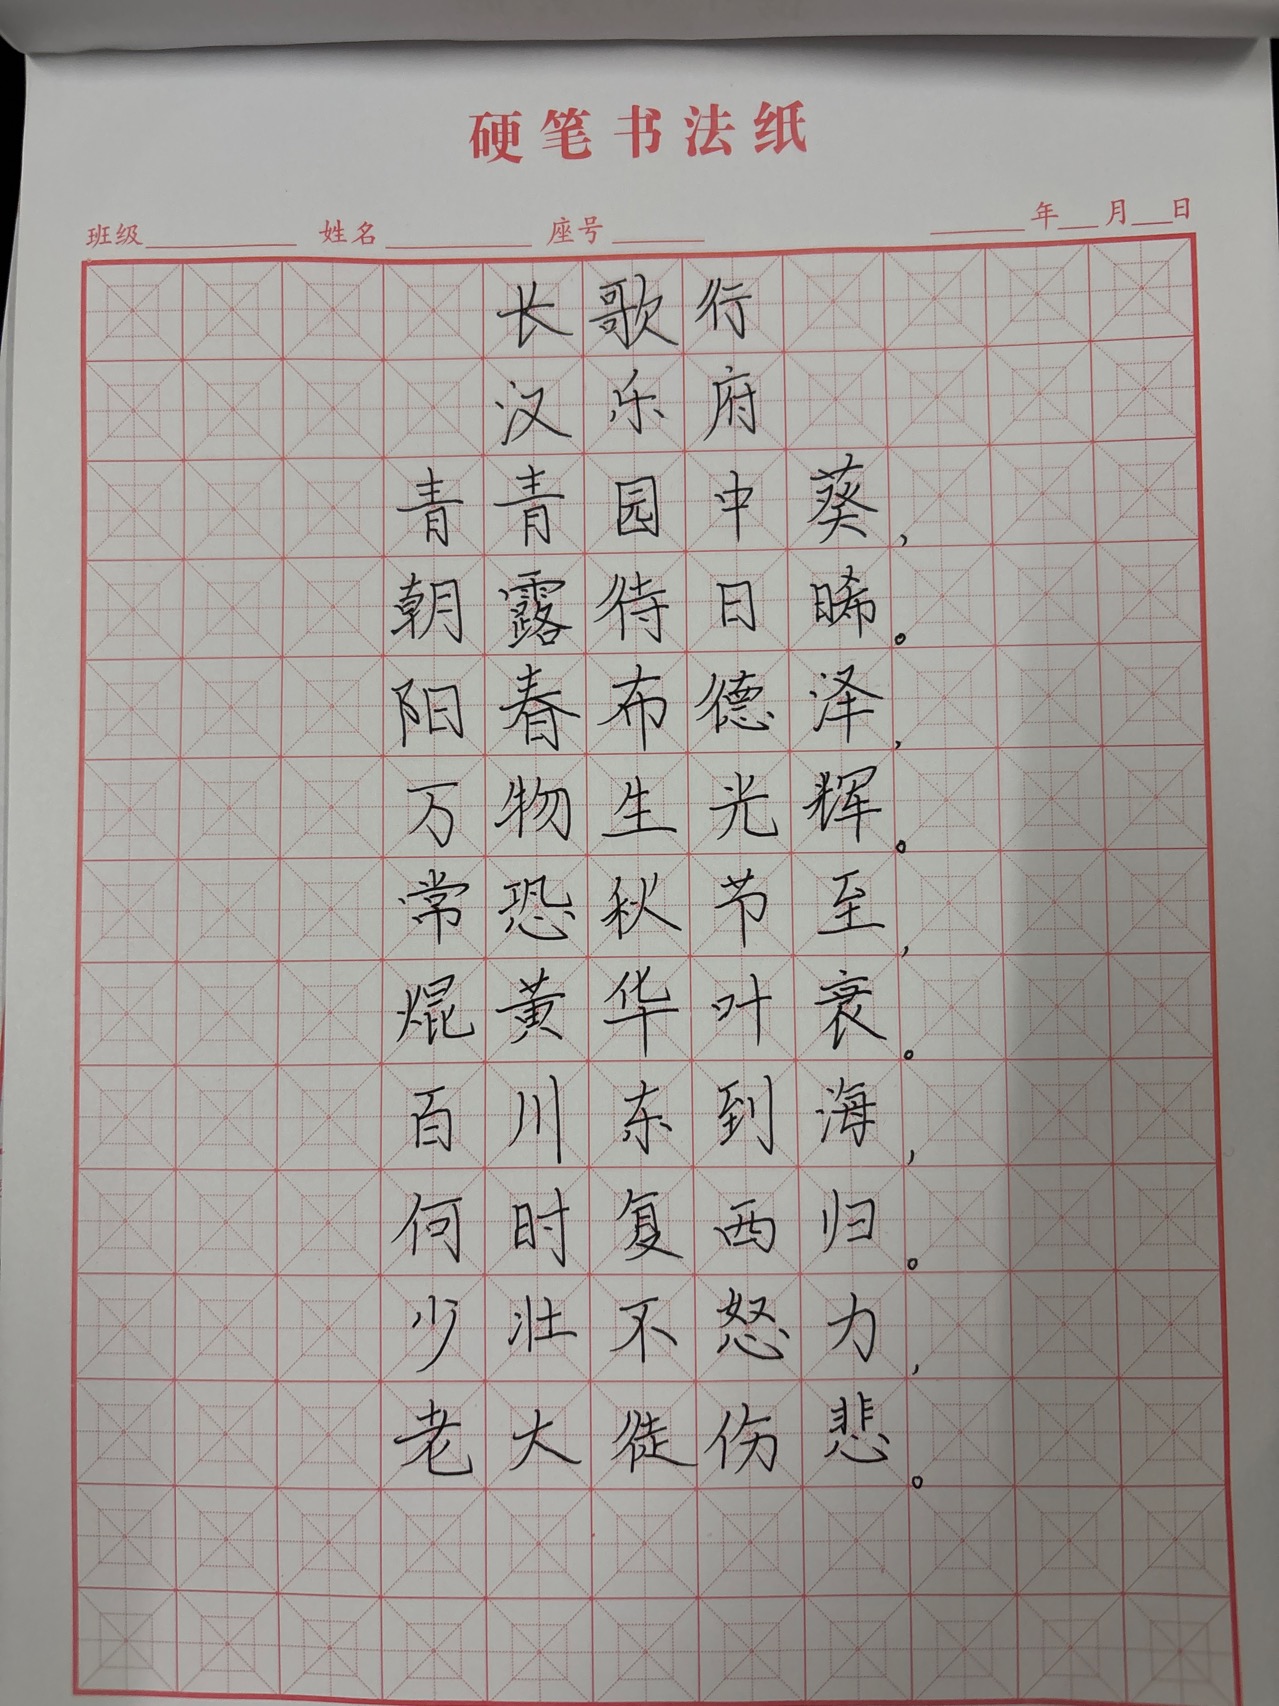 硬笔书法纸
班级 姓名 座号 年 月 日
长歌行
汉乐府
青青园中葵,
朝露待日晞。
阳春布德泽,
万物生光辉。
常恐秋节至,
焜黄华叶衰。
百川东到海,
何时复西归。
少壮不怒力,
老大徒伤悲。